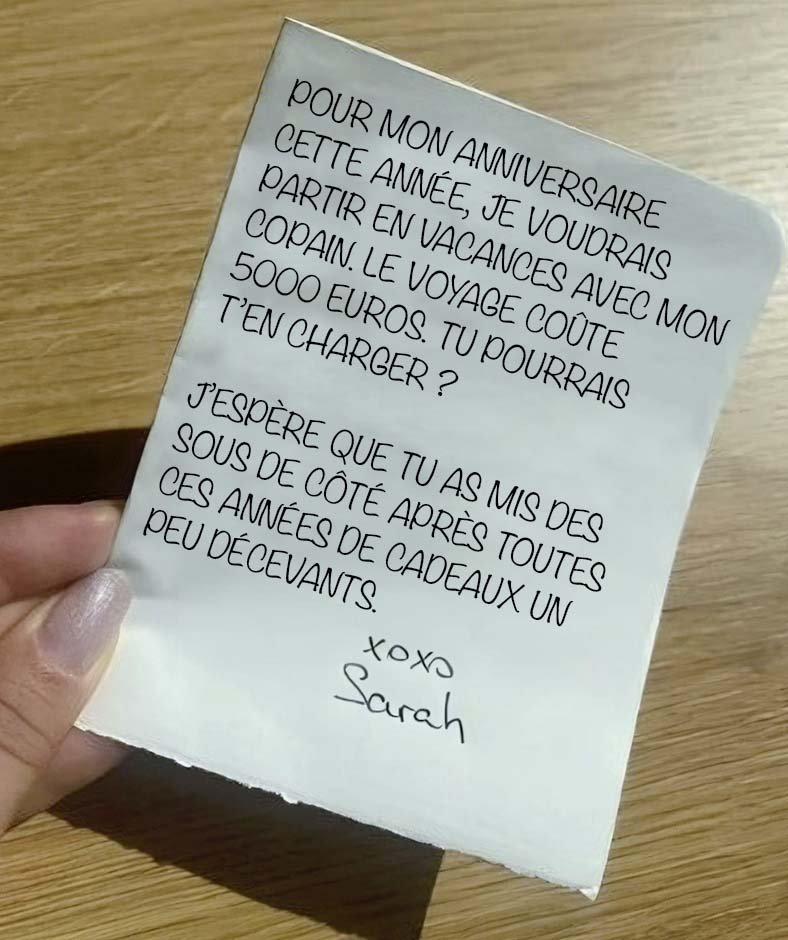 POUR MON ANNIVERSAIRE
CETTE ANNÉE, JE VOUDRAIS
PARTIR EN VACANCES AVEC MON
COPAIN. LE VOYAGE COÛTE
5000 EUROS. TU POURRAIS
T'EN CHARGER ?
J'ESPÈRE QUE TU AS MIS DES
SOUS DE CÔTÉ APRÈS TOUTES
CES ANNÉES DE CADEAUX UN
PEU DÉCEVANTS.
xoxo
Sarah